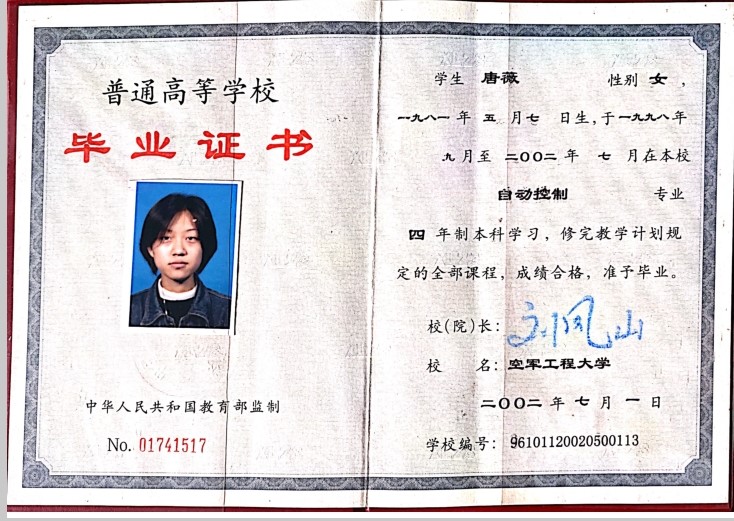 普通高等学校
毕业证书
中华人民共和国教育部监制
No. 01741517
学生 唐薇 性别 女，
一九八一年 五 月七 日生，于一九九八年
九月至 二〇〇二年 七 月在本校
自动控制 专业
四 年制本科学习，修完教学计划规
定的全部课程，成绩合格，准予毕业。
校(院)长：刘凤山
校 名：空军工程大学
二〇〇二年 七 月 一 日
学校编号：96101120020500113